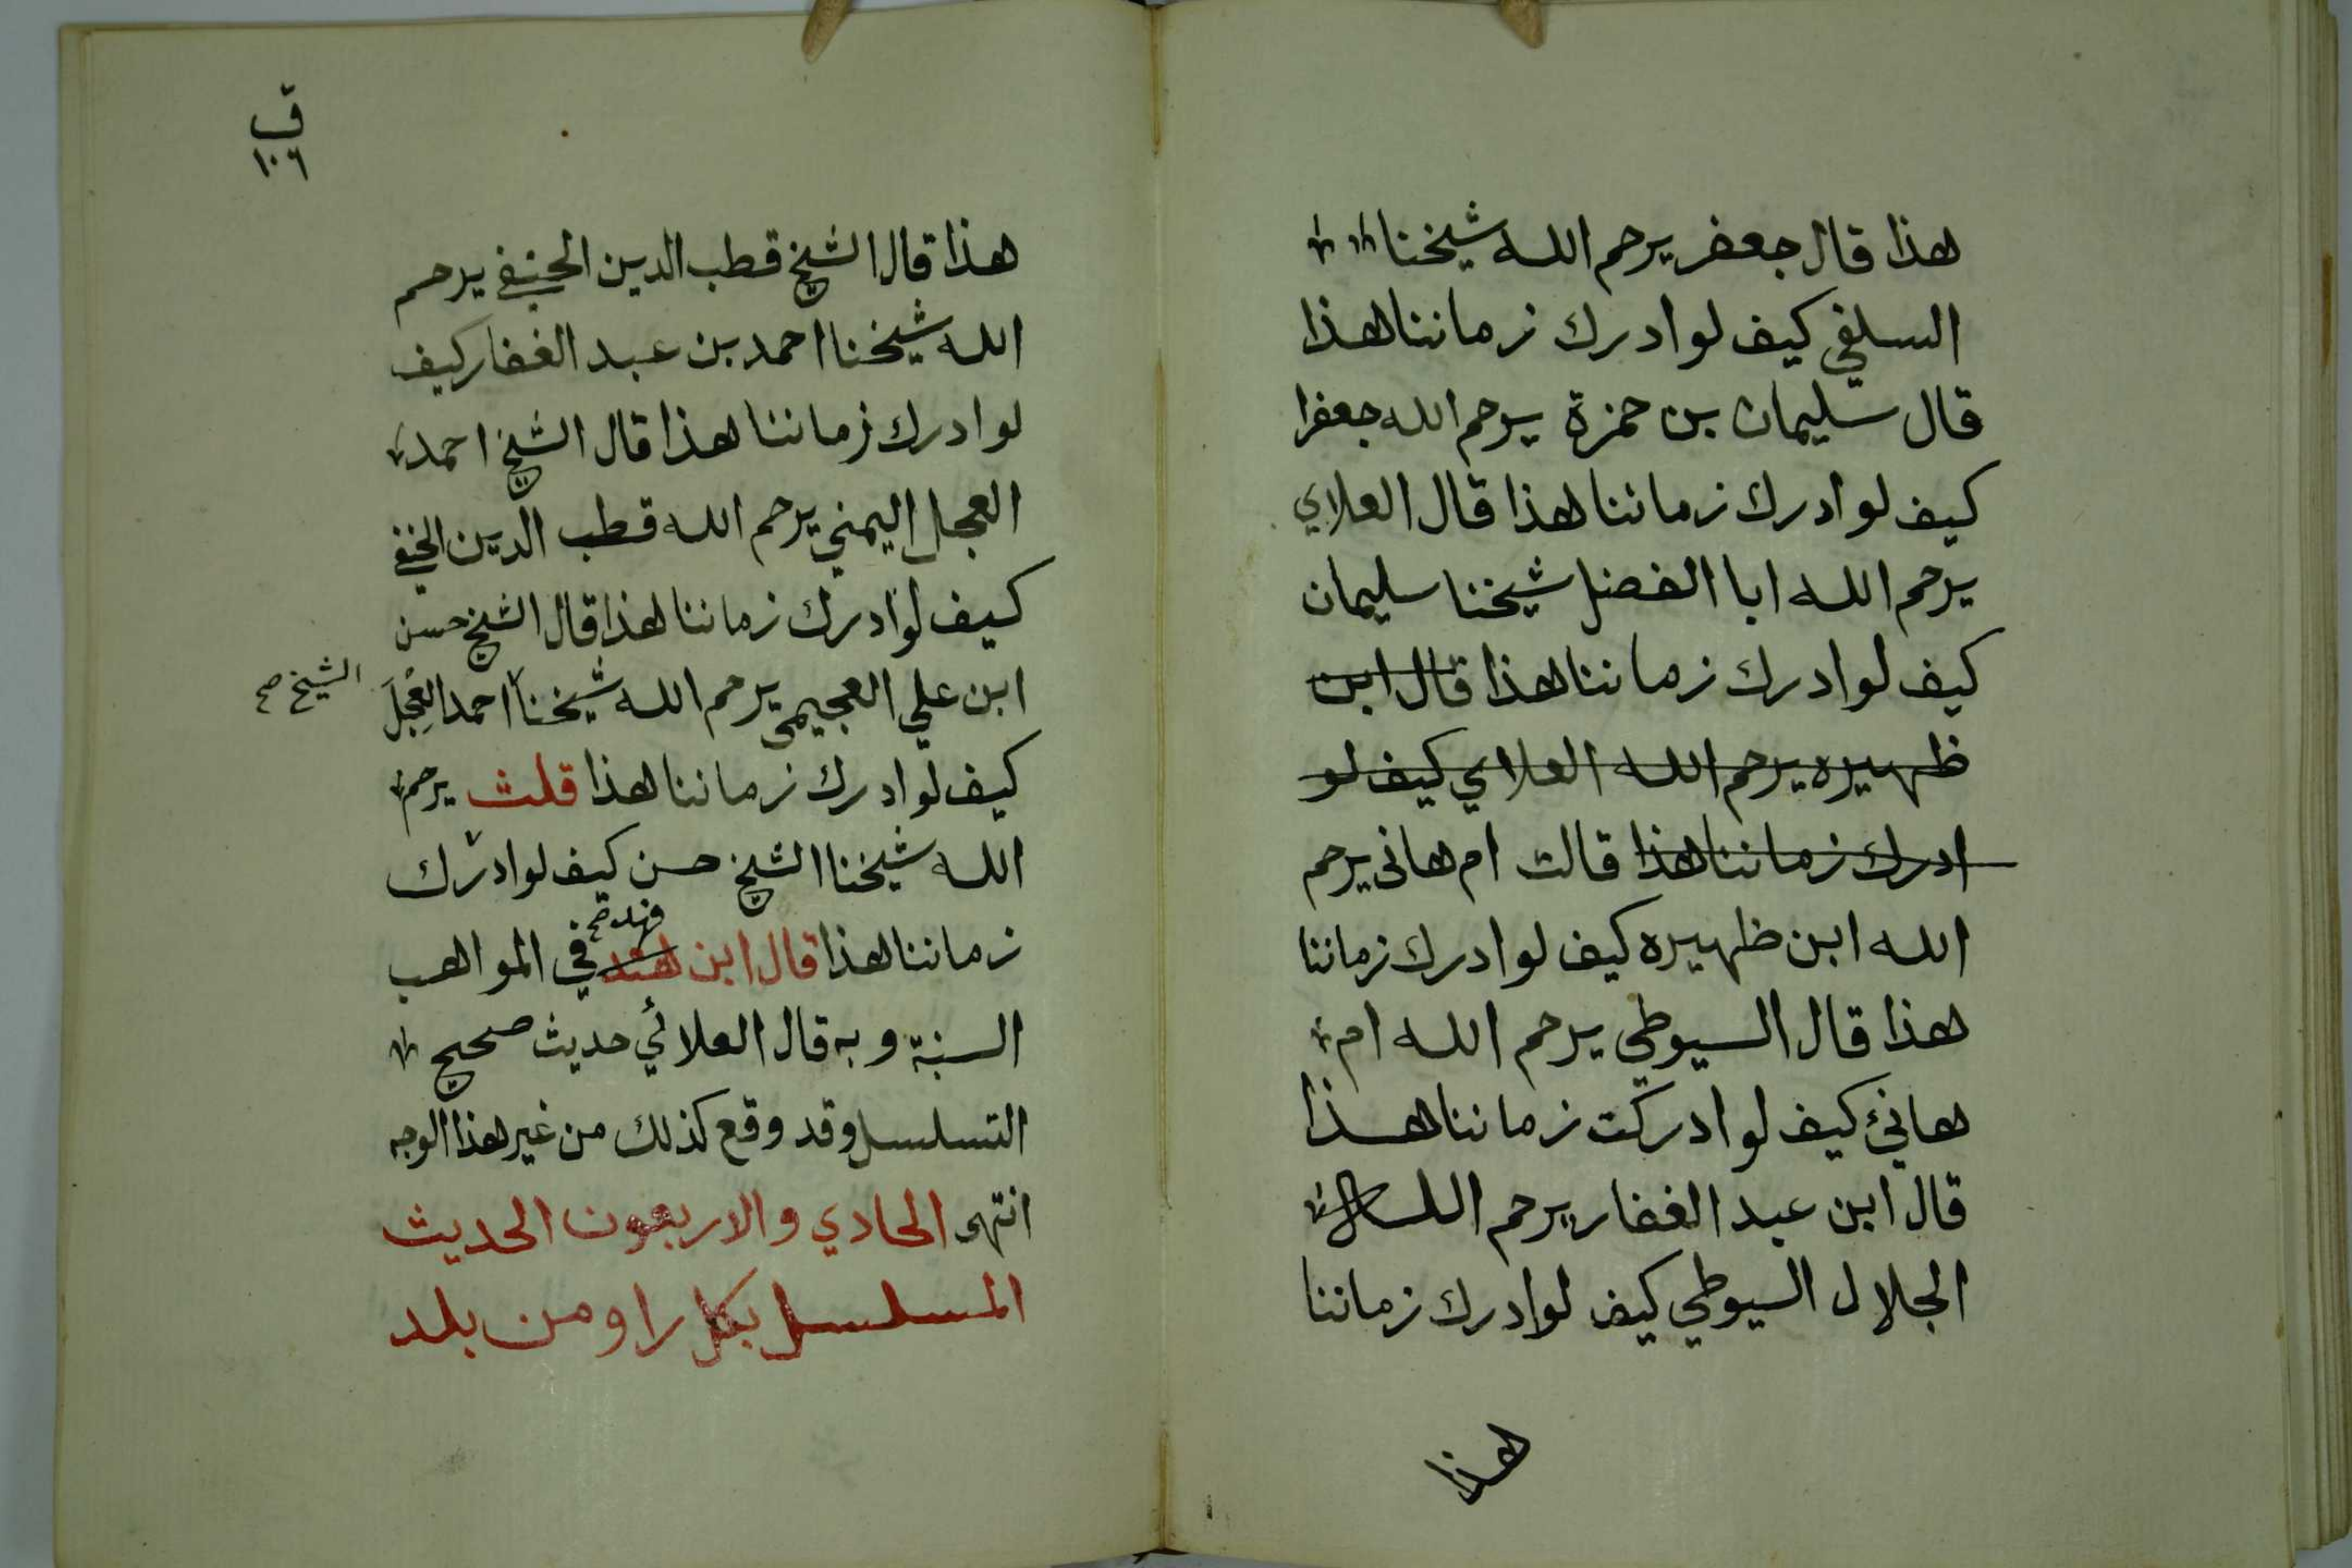 هذا قال جعفر يرحم الله شيخنا
السلفي كيف لو ادرك زماننا هذا
قال سليمان بن حمزة يرحم الله جعفرا
كيف لو ادرك زماننا هذا قال العلاي
يرحم الله ابا الفضل شيخنا سليمان
كيف لو ادرك زماننا هذا قال ابن
ظهيره يرحم الله العلاي كيف لو
ادرك زماننا هذا قالت ام هانى يرحم
الله ابن ظهيره كيف لو ادرك زماننا
هذا قال السيوطي يرحم الله ام
هانئ كيف لو ادركت زماننا هذا
قال ابن عبد الغفار يرحم الله
الجلال السيوطي كيف لو ادرك زماننا
هذا
ق
١٠٦
هذا قال الشيخ قطب الدين الحنفي يرحم
الله شيخنا احمد بن عبد الغفار كيف
لو ادرك زماننا هذا قال الشيخ احمد
العجل اليمني يرحم الله قطب الدين الحنفي
كيف لو ادرك زماننا هذا قال الشيخ حسن
ابن علي العجيمي يرحم الله شيخنا احمد العجل
الشيخ صح
كيف لو ادرك زماننا هذا قلت يرحم
الله شيخنا الشيخ حسن كيف لو ادرك
فهد صح
زماننا هذا قال ابن هند في المواهب
السنية وبه قال العلائي حديث صحيح
التسلسل وقد وقع كذلك من غير هذا الوجه
انتهى الحادي والاربعون الحديث
المسلسل بكل راو من بلد